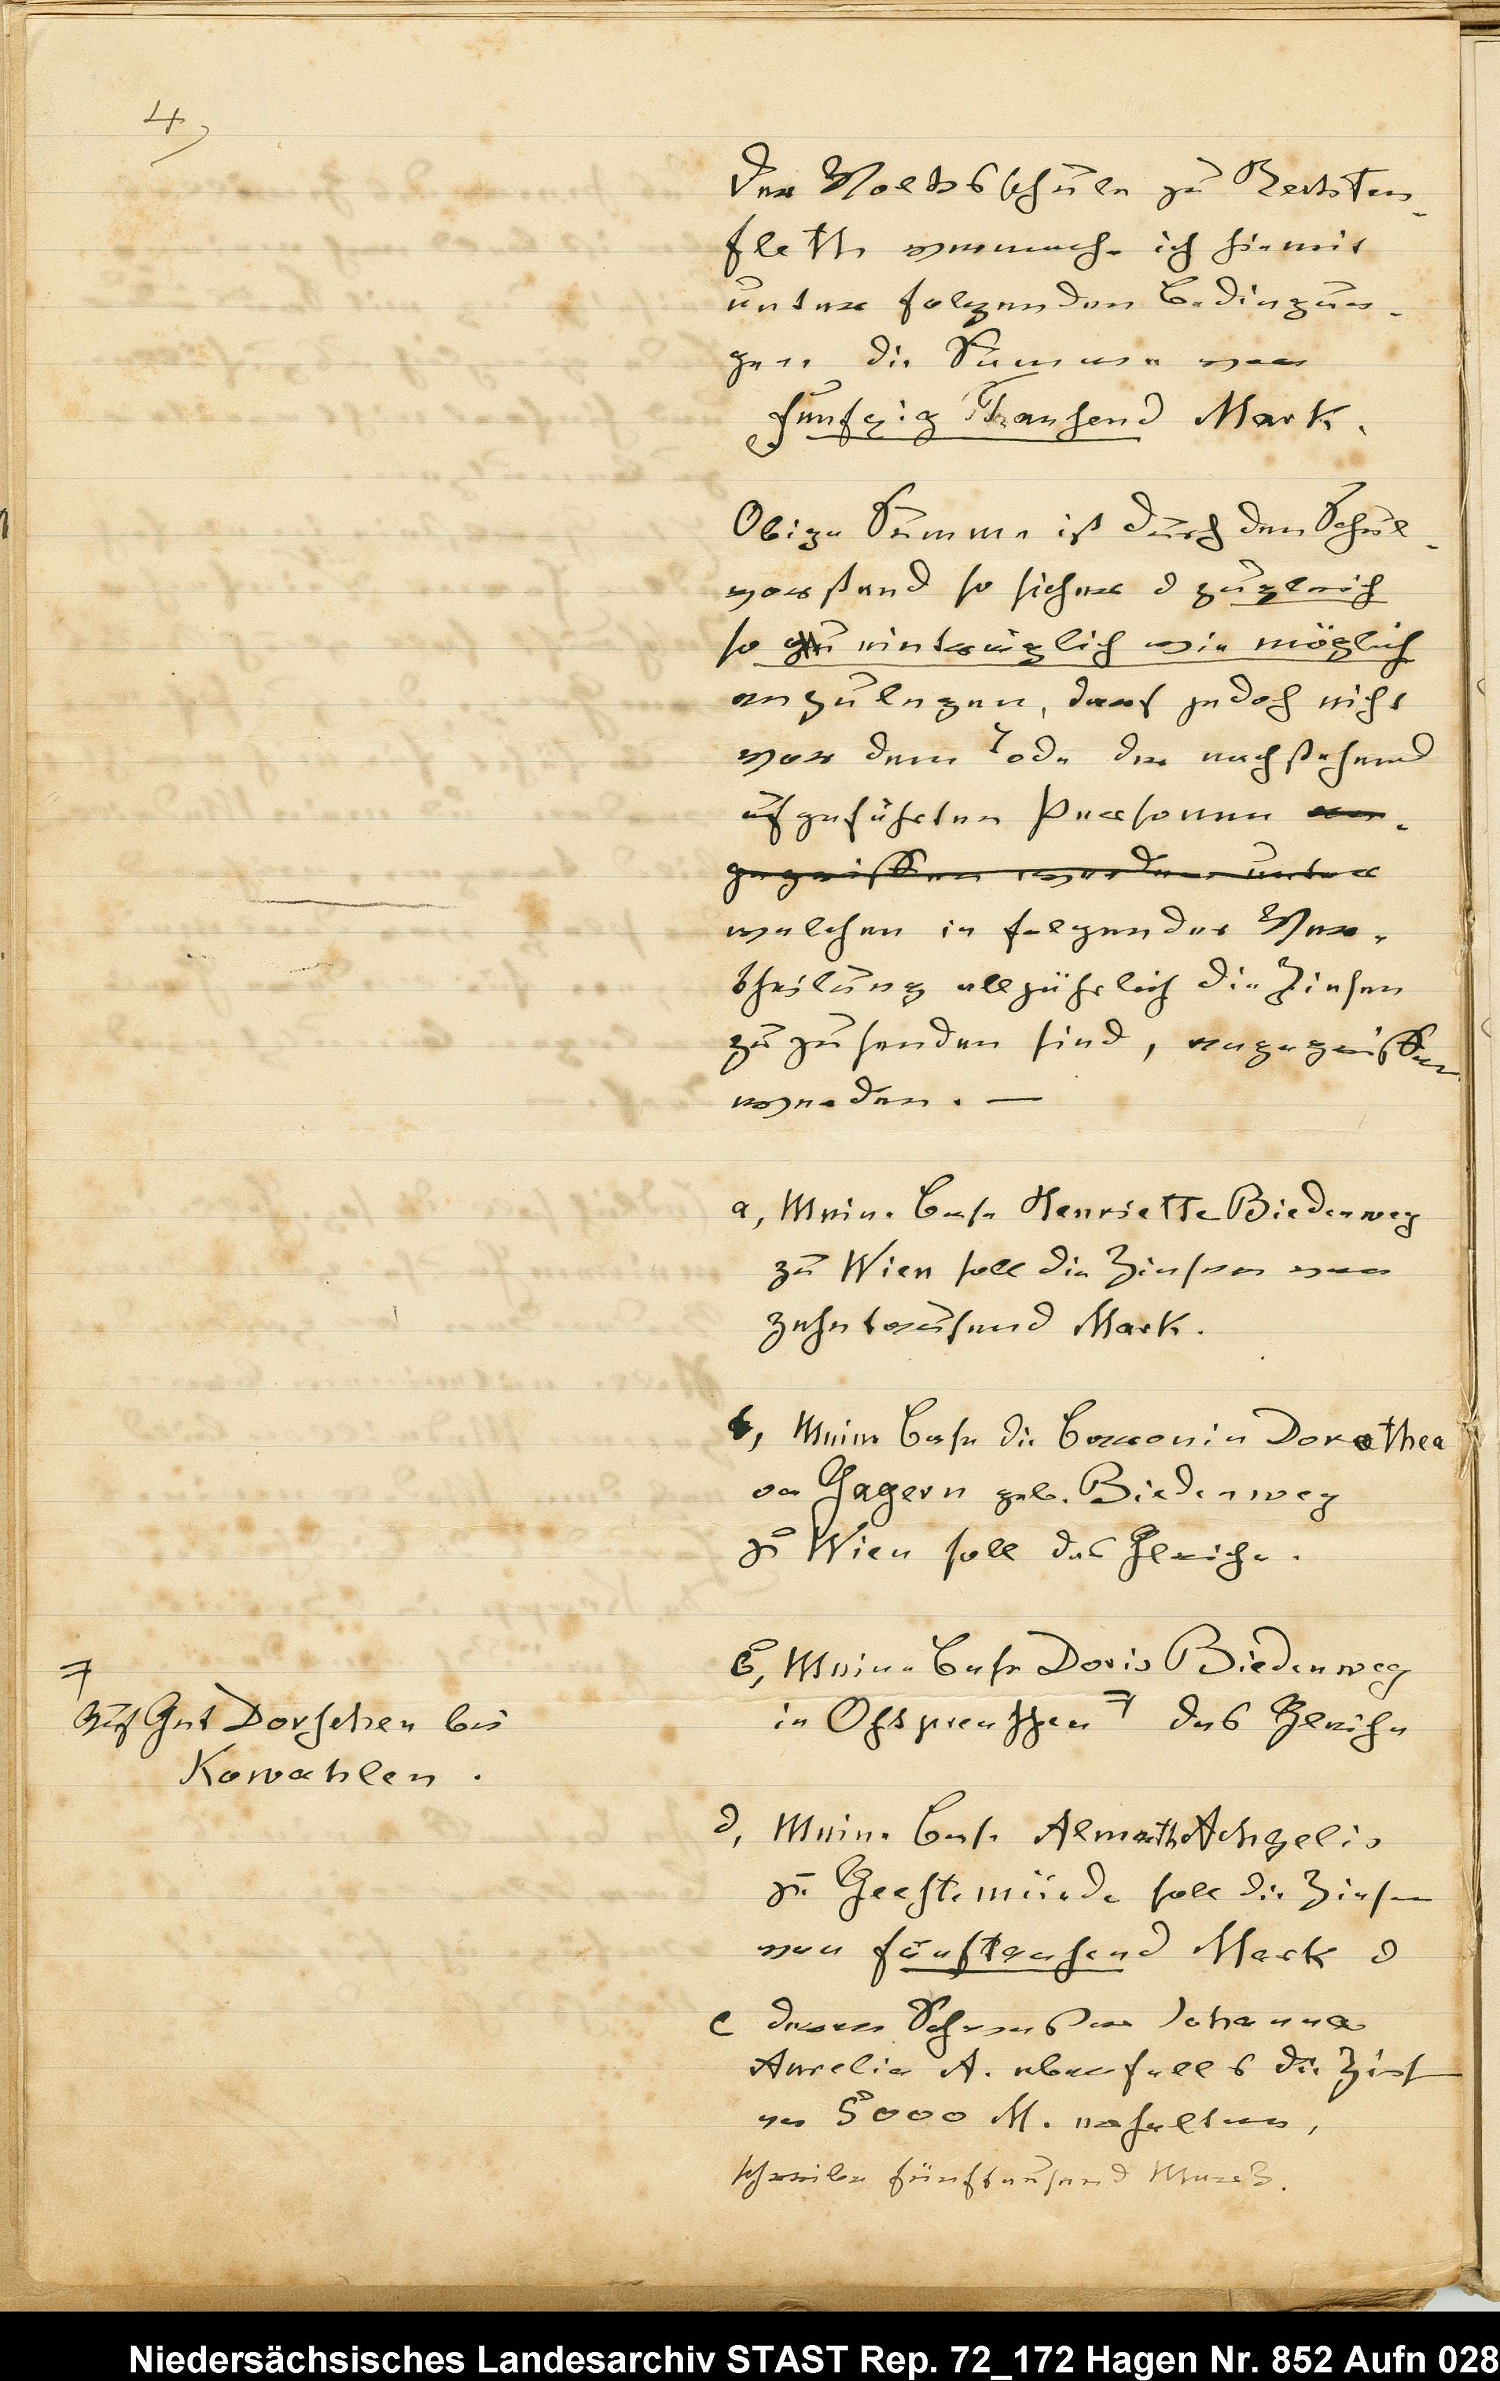 4,
Der Volksschule zu Rechten-
fleth vermache ich hiemit
unter folgenden Bedingun-
gen die Summe von
fünfzig Thausend Mark.
Obige Summe ist durch den Schul-
vorstand so sicher & zugleich
so einträglich wie möglich
anzulegen, darf jedoch nicht
vor dem Tode der nachstehend
aufgeführten Personen an-
gegriffen werden unter
welchen in folgender Ver-
theilung alljährlich die Zinsen
zuzusenden sind, angegriffen
werden. —
a, Meine Base Henriette Biedenweg
zu Wien soll die Zinsen von
zehntausend Mark.
b, Meine Base die Baronin Dorothea
von Gagern geb. Biedenweg
zu Wien soll das Gleiche.
c, Meine Base Doris Biedenweg
in Ostpreußen ⌿ das Gleiche
⌿
Auf Gut Dorschen bei
Kowahlen.
d, Meine Base Almath Achgelis
zu Geestemünde soll die Zinsen
von fünftausend Mark &
e deren Schwester Johanne
Aurelie A. ebenfalls die Zinsen
von 5000 M. erhalten,
schreibe fünftausend Mark.
Niedersächsisches Landesarchiv STAST Rep. 72_172 Hagen Nr. 852 Aufn 028